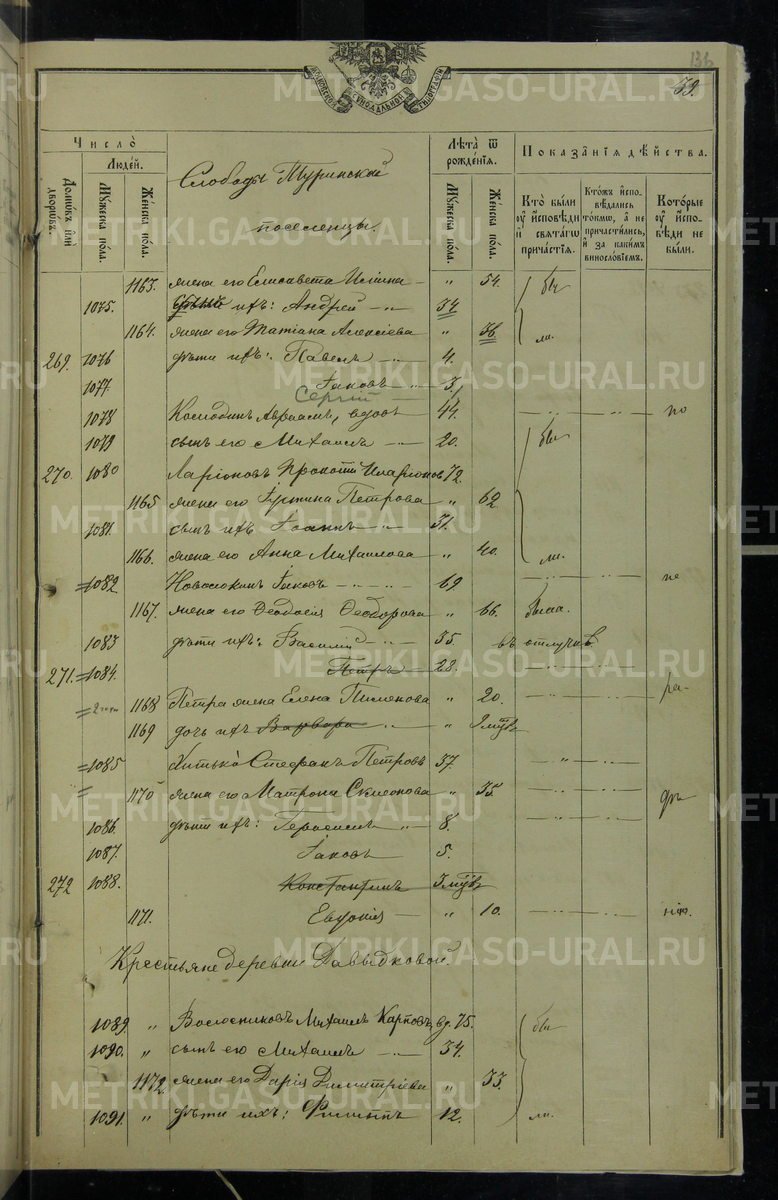 136
59.
МОСКОВСКОЙ СѴНОДАЛЬНОЙ ТИПОГРАФІИ
Число̀
Людей.
Домѡвъ илѝ дворѡвъ.
Мужеска пола.
Женска пола.
Лѣта ѿ рождéнїя.
Мужеска пола.
Женска пола.
Показáнїя дѣйства.
Ктѡ̀ были оу҆ и҆сповѣди и҆ свѧтагѡ причáстїѧ.
Ктóжъ и҆сповѣдались тóкмѡ, а҆ не причастились, и҆ за какимъ винослóвїемъ.
Котóрые оу҆ и҆сповѣди не были.
Слободы Туринской
поселенцы.
1163. жена его Елисавета Ильина — " 54. бы
1075. дѣти ихъ: Андрей — 34.
1164. жена его Татіана Алексіева " 36. ли.
269. 1076 дѣти ихъ: Павелъ — 4.
1077 Іаковъ — 3
Сергій
1078 Авраамъ, вдовъ 44. — по
1079 сынъ его Михаилъ — 20. бы
270. 1080 Ларіоновъ Прокопій Иларіоновъ 72.
1165 жена его Петрова " 62
1081. сынъ ихъ Іоаннъ " 31.
1166. жена его Анна Михаилова " 40. ли.
1082. Іаковъ — 69 — не
1167. жена его Ѳеодосія Ѳеодорова " 66. была.
1083 дѣти ихъ: Василій 35. въ отлучкѣ.
271. 1084. Петръ — 28. —
1168 Петра жена Елена Пименова " 20. — ра-
1169 дочь ихъ Варвара " 3 мѣс.
1085 Хитько Стефанъ Петровъ 37. —
1170 жена его Матрона Симеонова " 35. — дѣ
1086. дѣти ихъ: Герасимъ " 8. —
1087. Іаковъ 5.
272 1088. Константинъ 3 мѣс.
1171. Евдокія — " 10. — нію.
Крестьяне деревни Давыдковой.
1089. " Волосниковъ Михаилъ Карповъ, вд. 75. бы
1090. " сынъ его Михаилъ — 34.
1172. жена его Дарія Димитріева " 33.
1091. " дѣти ихъ: Филиппъ 12. ли.
METRIKI.GASO-URAL.RU